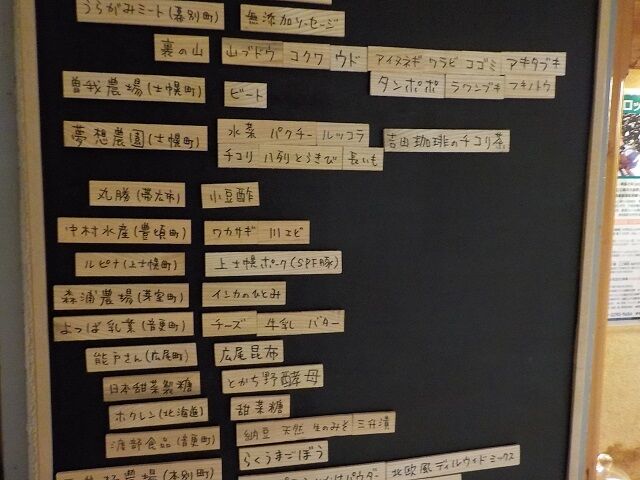 うらがみミート(幕別町) 無添加ソーセージ
裏の山 山ブドウ コクワ ウド アイヌネギ ワラビ コゴミ アキタブキ
曽我農場(士幌町) ビート タンポポ ラワンブキ フキノトウ
夢想農園(士幌町) 水菜 パクチー ルッコラ 吉田珈琲のチコリ茶
チコリ 八列とうきび 長いも
丸勝(帯広市) 小豆酢
中村水産(豊頃町) ワカサギ 川エビ
ルピナ(上士幌町) 上士幌ポーク(SPF豚)
森浦農場(芽室町) インカのひとみ
よつば乳業(音更町) チーズ 牛乳 バター
能戸さん(広尾町) 広尾昆布
日本甜菜製糖 とかち野酵母
ホクレン(北海道) 甜菜糖
渡部食品(音更町) 納豆 天然 生のみそ 三升漬
らくうまごぼう
農場(本別町) パウダー 北欧風ディルウィドミックス